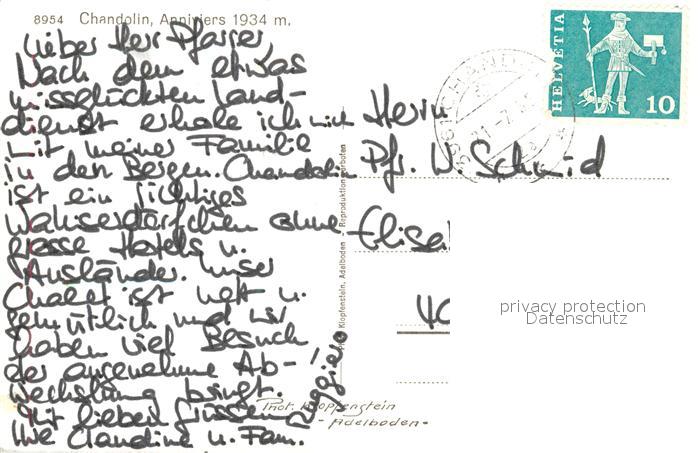 8954 Chandolin, Anniviers 1934 m.
Lieber Herr Pfarrer,
Nach dem etwas
missglückten Land-
dienst erhole ich mich
mit meiner Familie
in den Bergen. Chandolin
ist ein richtiges
Walliserdörfchen ohne
grosse Hotels u.
Ausländer. Unser
Chalet ist nett u.
gemütlich und wir
haben viel Besuch
der angenehme Ab-
wechslung bringt.
Mit lieben Grüssen
Ihre Claudine u. Fam.
Ruggiero
Klopfenstein, Adelboden - Reproduktion verboten
Phot. Klopfenstein
- Adelboden -
HELVETIA
10
CHAND
Herrn
Pfr. W. Schmid
Elisa
40
privacy protection
Datenschutz